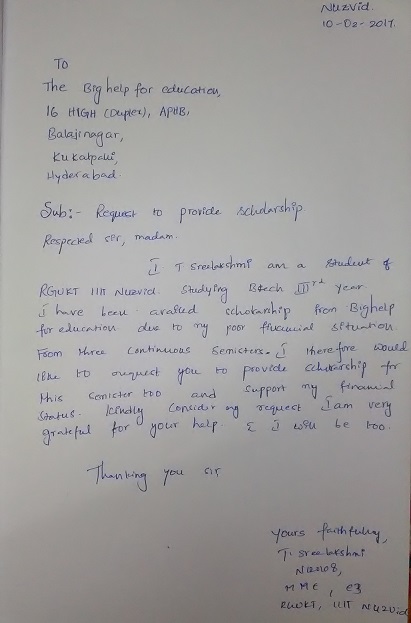 Nuzvid.
10-02-2017.
To
The Big help for education,
16 HIGH (Duplex), APHB,
Balajinagar,
Kukatpalli,
Hyderabad.
Sub:- Request to provide scholarship
Respected sir, madam.
I T Sreelakshmi am a student of
RGUKT IIIT Nuzvid. Studying Btech IIIrd year.
I have been availed scholarship from Bighelp
for education due to my poor financial situation.
From three continuous semisters. I therefore would
like to request you to provide scholarship for
this semister too and support my financial
status. kindly consider my request I am very
grateful for your help & I will be too.
Thanking you sir
Yours faithfully,
T. Sreelakshmi
MME, E3
RGUKT, IIIT NUZVid